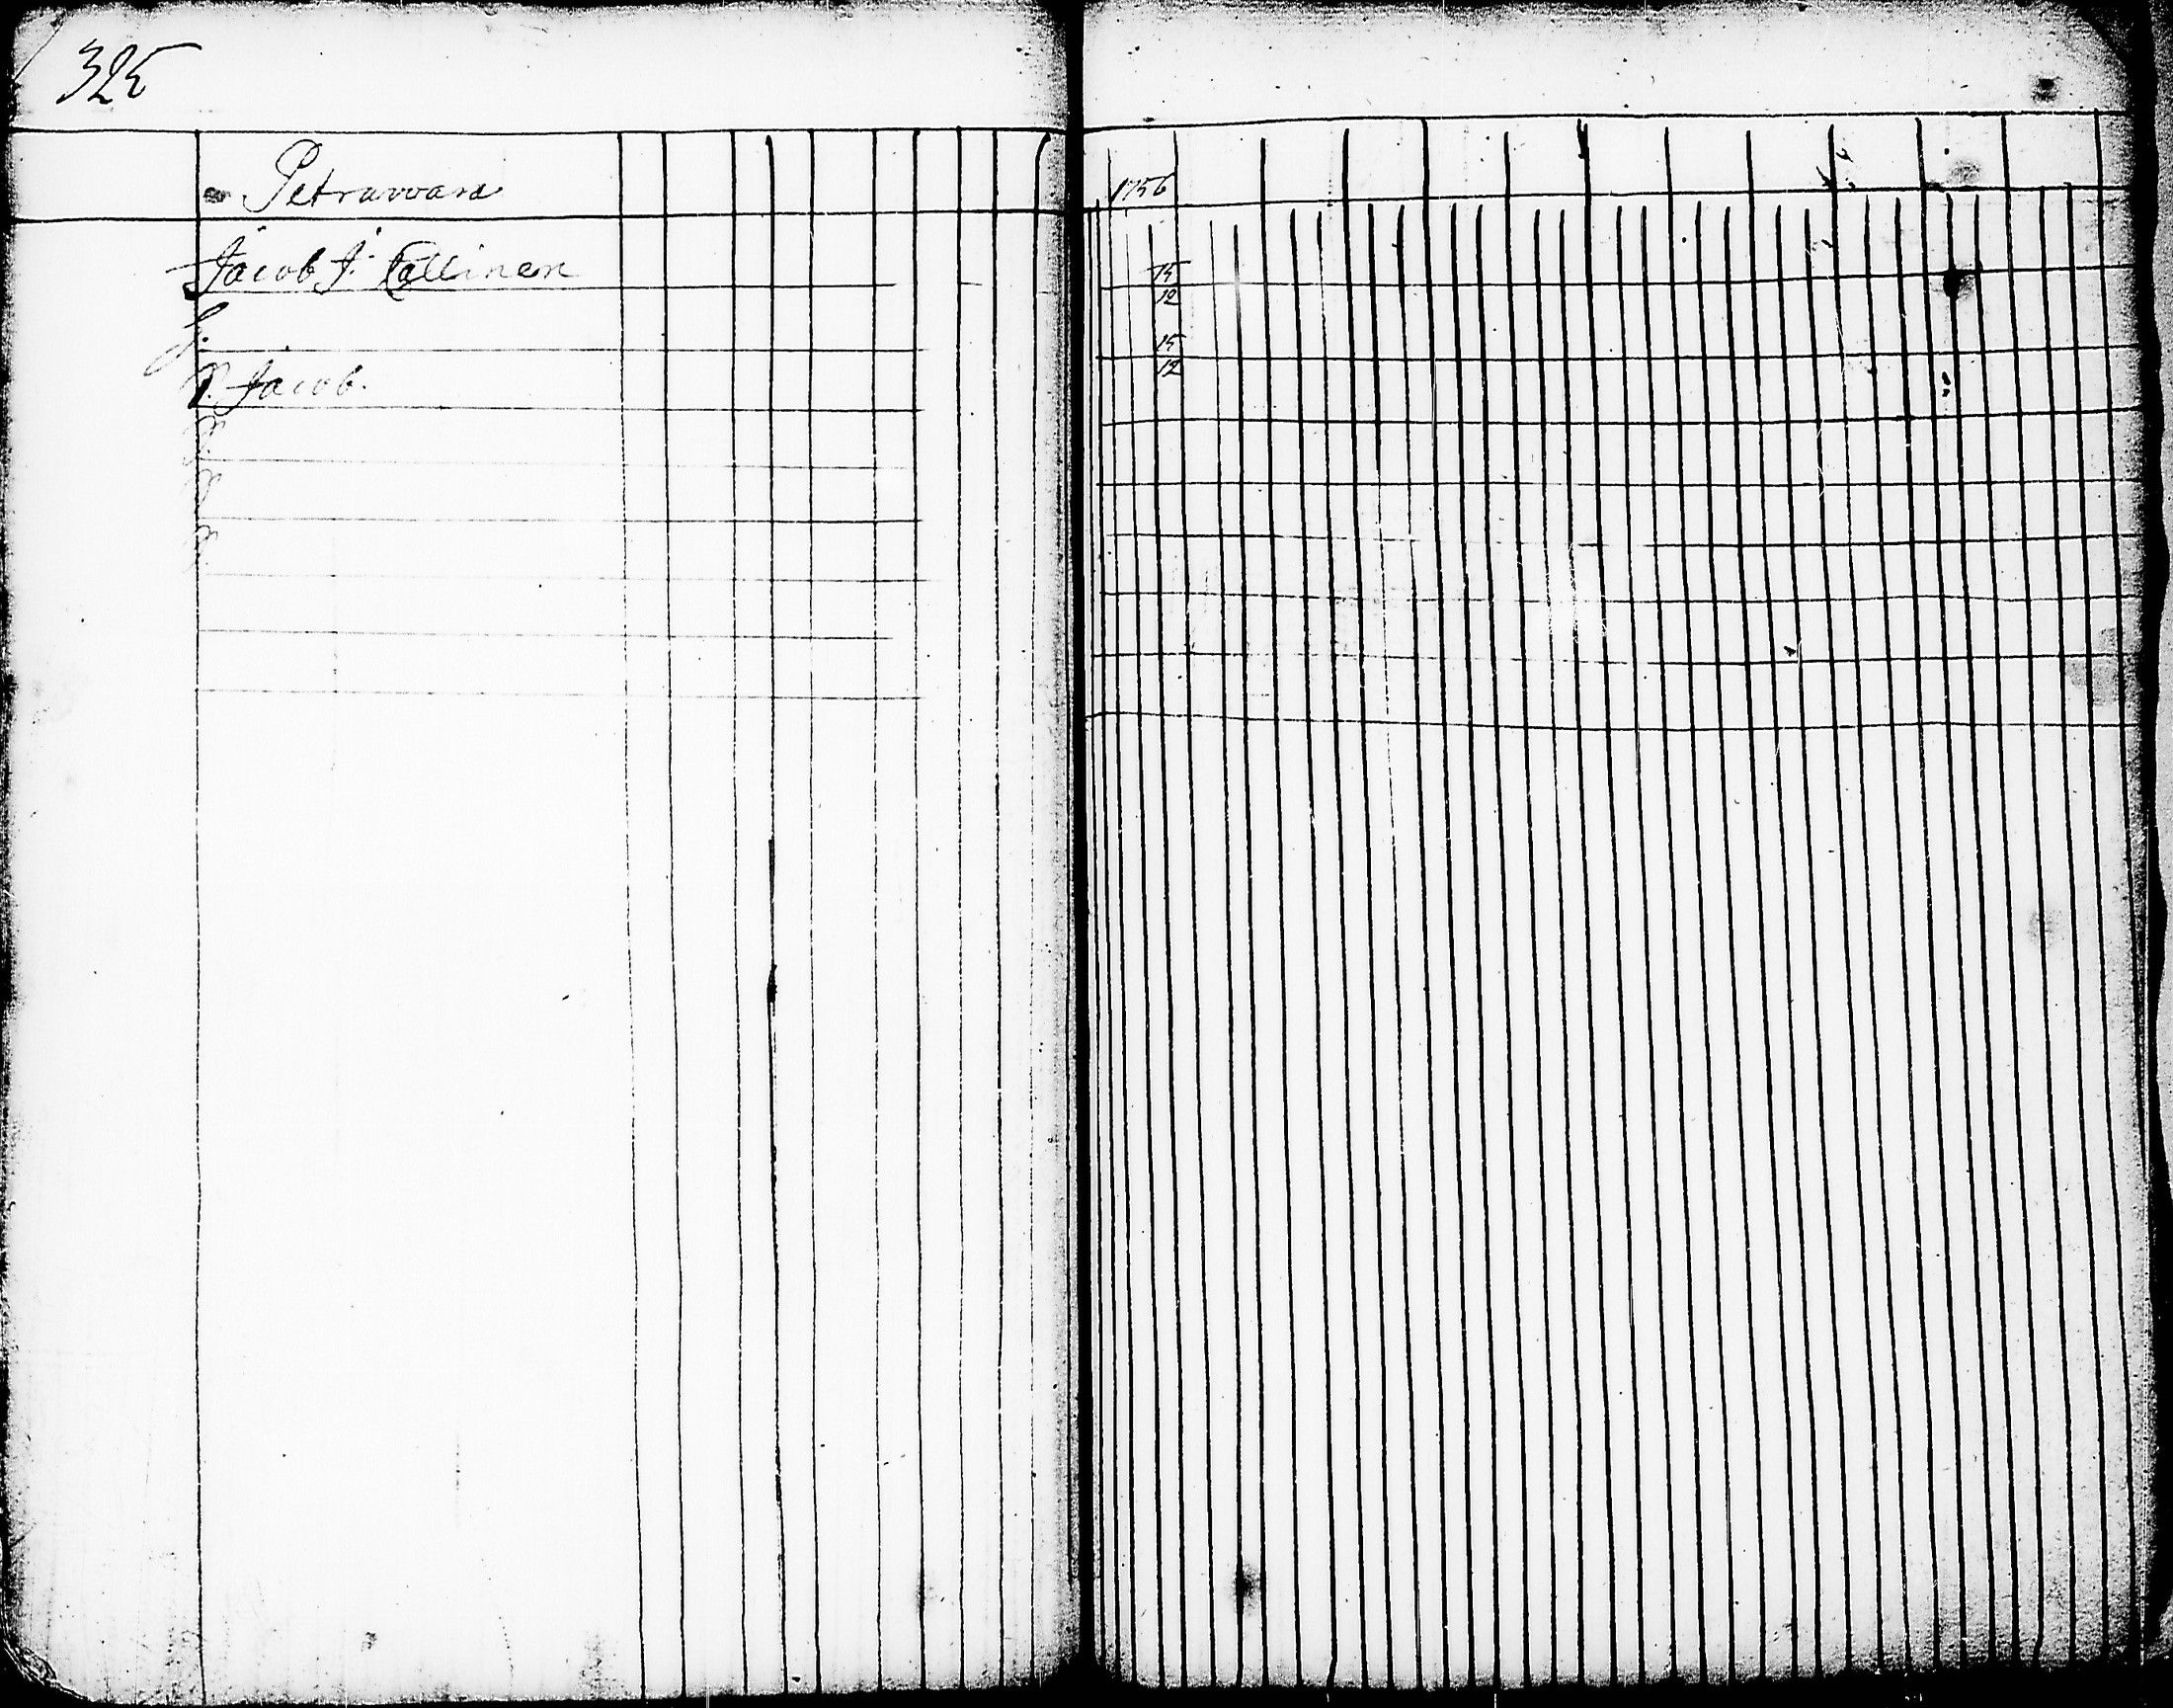 325
Petrawara
1756
Jacob J. Kallinen
15
12
h.
15
12
P. Jacob.
P.
P.
P.